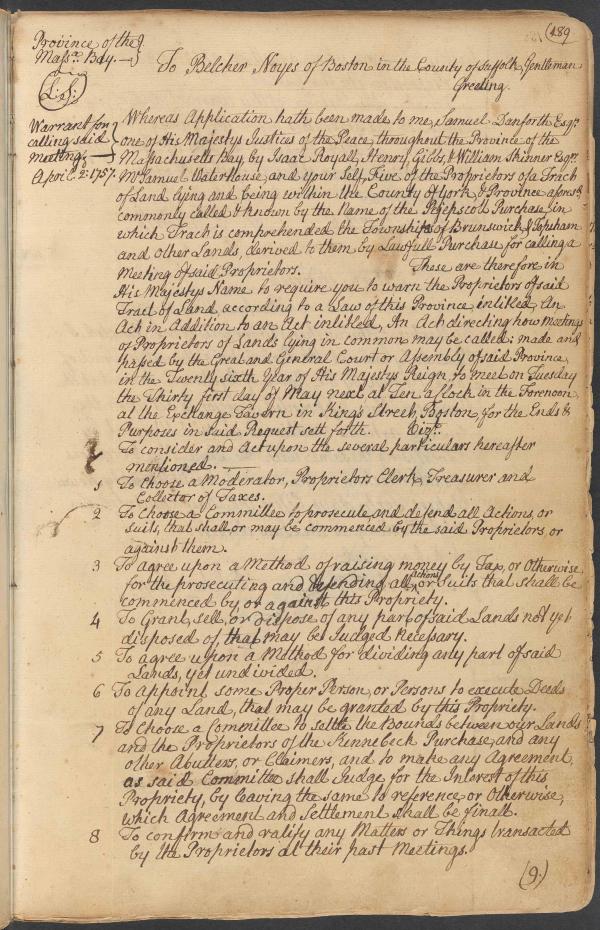 (189
Province of the
Massa. Bay. —
To Belcher Noyes of Boston in the County of Suffolk Gentleman
Greeting.
L: S:
Warrant for
calling said
Meeting.
April 2: 1757.
Whereas Application hath been made to me, Samuel Danforth Esqr.
one of His Majestys Justices of the Peace, throughout the Province of the
Massachusetts Bay, by Isaac Royall, Henry Gibbs, & William Skinner Esqrs.
Mr. Samuel WaterHouse, and your Self, Five of the Proprietors of a Tract
of Land lying and being within the County of York, & Province aforesd.
commonly called & known by the Name of the Pejepscott Purchase, in
which Tract is comprehended the Townships of Brunswick & Topsham
and other Lands, derived to them by Lawfull Purchase, for calling a
Meeting of said Proprietors. These are therefore in
His Majestys Name to require you to warn the Proprietors of said
Tract of Land, according to a Law of this Province, intitled, An
Act in Addition to an Act intitled, An Act directing how Meetings
of Proprietors of Lands lying in common may be called: made and
passed by the Great and General Court or Assembly of said Province
in the Twenty sixth Year of His Majestys Reign, to meet on Tuesday
the Thirty first day of May next at Ten a Clock in the Forenoon,
at the Exchange Tavern in Kings Street, Boston, for the Ends &
Purposes in said Request sett forth. Vizt.
To consider and Act upon the several particulars hereafter
mentioned. —
1 To Choose a Moderator, Proprietors Clerk, Treasurer and
Collector of Taxes.
2 To Choose a Committee to prosecute and defend all Actions, or
Suits, that shall or may be commenced by the said Proprietors, or
against them.
3 To agree upon a Method of raising money by Tax, or Otherwise
for the prosecuting and defending all Actions or Suits that shall be
commenced by or against this Propriety.
4 To Grant, sell, or dispose of any part of said Lands not yet
disposed of, that may be Judged necessary.
5 To agree upon a Method for dividing any part of said
Lands, yet undivided.
6 To Appoint some Proper Person, or Persons to execute Deeds
of any Land, that may be granted by this Propriety.
7 To Choose a Committee to settle the Bounds between our Lands
and the Proprietors of the Kennebeck Purchase, and any
other Abutters, or Claimers, and to make any Agreement,
as said Committee shall Judge for the Interest of this
Propriety, by leaving the same to reference or Otherwise,
which Agreement and Settlement shall be finall.
8 To confirm and ratify any Matters or Things transacted
by the Proprietors at their past Meetings.
(9.)